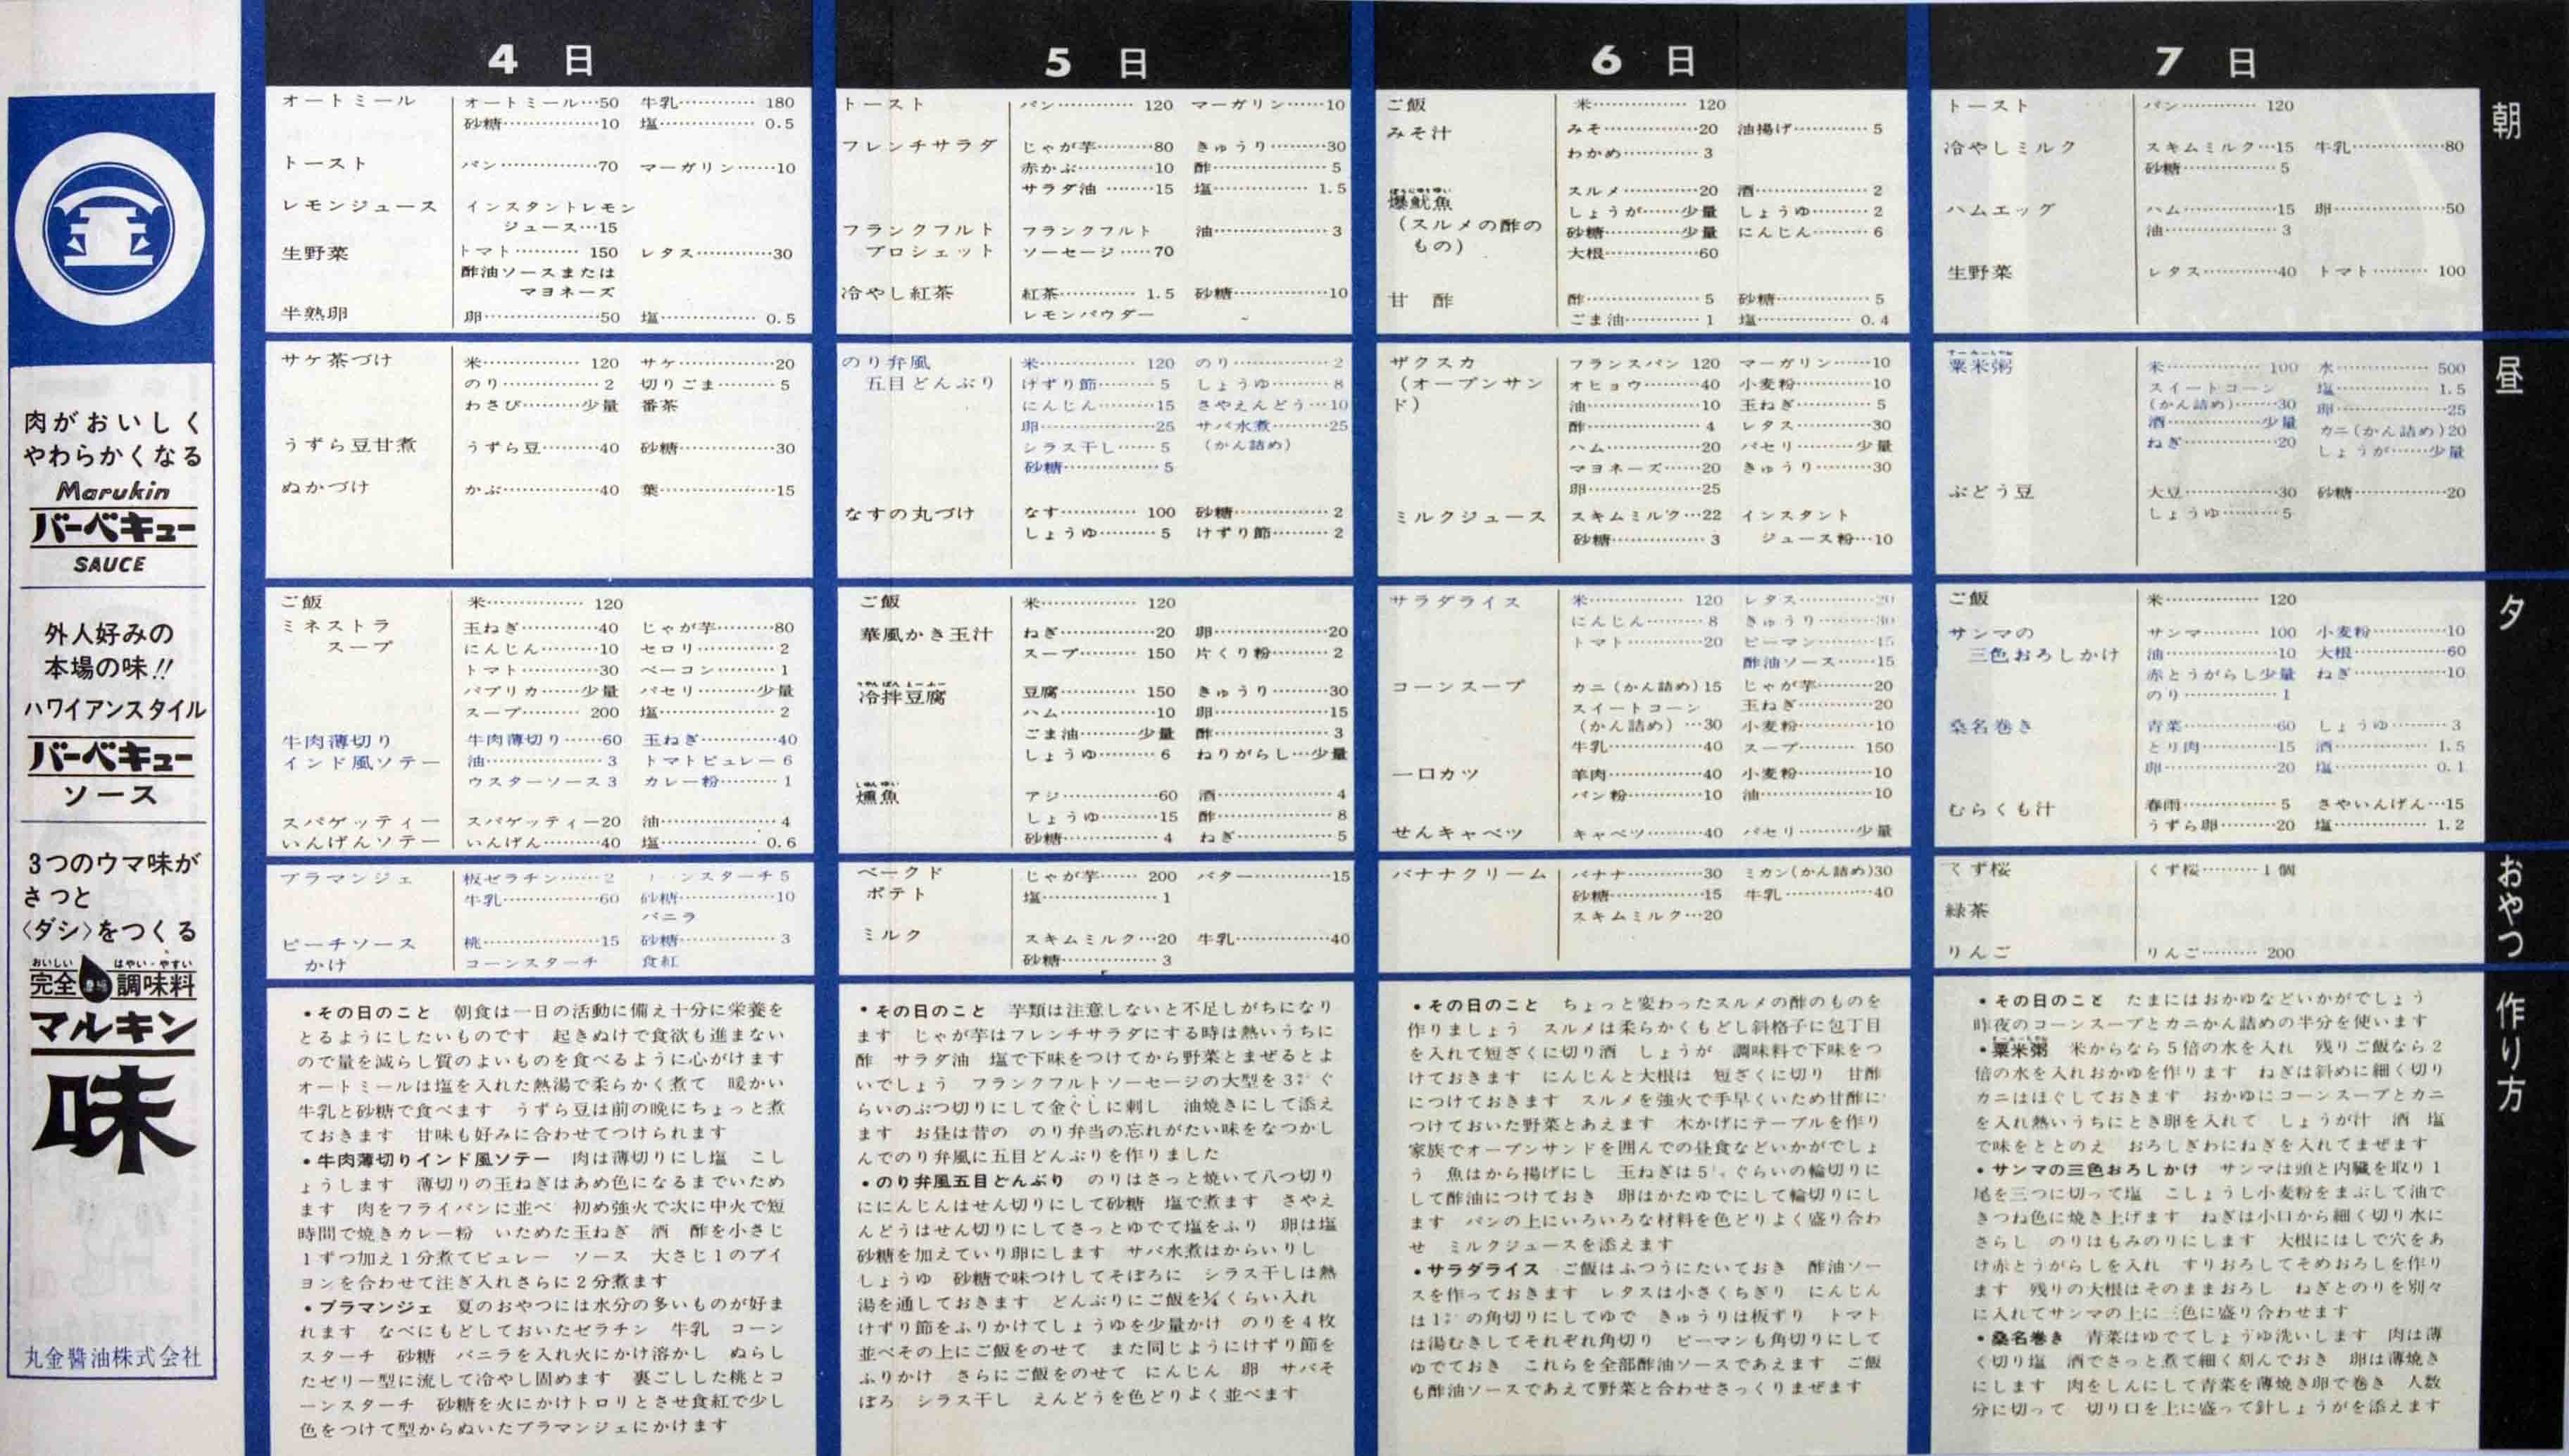 肉がおいしく
やわらかくなる
Marukin
バーベキュー
SAUCE
外人好みの
本場の味!!
ハワイアンスタイル
バーベキュー
ソース
3つのウマ味が
さっと
〈ダシ〉をつくる
おいしい はやい・やすい
完全 調味料
マルキン
味
丸金醬油株式会社
4日
オートミール オートミール…50 牛乳………… 180
砂糖……………10 塩…………… 0.5
トースト パン……………70 マーガリン……10
レモンジュース インスタントレモン
ジュース…15
生野菜 トマト………… 150 レタス…………30
酢油ソースまたは
マヨネーズ
半熟卵 卵………………50 塩…………… 0.5
サケ茶づけ 米…………… 120 サケ……………20
のり…………… 2 切りごま……… 5
わさび………少量 番茶
うずら豆甘煮 うずら豆………40 砂糖……………30
ぬかづけ かぶ……………40 葉………………15
ご飯 米…………… 120
ミネストラ 玉ねぎ…………40 じゃが芋………80
スープ にんじん………10 セロリ………… 2
トマト…………30 ベーコン……… 1
パプリカ……少量 パセリ………少量
スープ……… 200 塩……………… 2
牛肉薄切り 牛肉薄切り……60 玉ねぎ…………40
インド風ソテー 油……………… 3 トマトピュレー 6
ウスターソース 3 カレー粉……… 1
スパゲッティー スパゲッティー20 油……………… 4
いんげんソテー いんげん………40 塩…………… 0.6
ブラマンジェ 板ゼラチン…… 2 ンスターチ 5
牛乳……………60 砂糖……………10
バニラ
ピーチソース 桃………………15 砂糖…………… 3
かけ コーンスターチ 食紅
・その日のこと 朝食は一日の活動に備え十分に栄養を
とるようにしたいものです 起きぬけで食欲も進まない
ので量を減らし質のよいものを食べるように心がけます
オートミールは塩を入れた熱湯で柔らかく煮て 暖かい
牛乳と砂糖で食べます うずら豆は前の晩にちょっと煮
ておきます 甘味も好みに合わせてつけられます
・牛肉薄切りインド風ソテー 肉は薄切りにし塩 こし
ょうします 薄切りの玉ねぎはあめ色になるまでいため
ます 肉をフライパンに並べ 初め強火で次に中火で短
時間で焼きカレー粉 いためた玉ねぎ 酒 酢を小さじ
1ずつ加え1分煮てピュレー ソース 大さじ1のブイ
ヨンを合わせて注ぎ入れさらに2分煮ます
・ブラマンジェ 夏のおやつには水分の多いものが好ま
れます なべにもどしておいたゼラチン 牛乳 コーン
スターチ 砂糖 バニラを入れ火にかけ溶かし ぬらし
たゼリー型に流して冷やし固めます 裏ごしした桃とコ
ーンスターチ 砂糖を火にかけトロリとさせ食紅で少し
色をつけて型からぬいたブラマンジェにかけます
5日
トースト パン………… 120 マーガリン……10
フレンチサラダ じゃが芋………80 きゅうり………30
赤かぶ…………10 酢……………… 5
サラダ油 ………15 塩…………… 1.5
フランクフルト フランクフルト 油……………… 3
ブロシェット ソーセージ……70
冷やし紅茶 紅茶………… 1.5 砂糖……………10
レモンパウダー
のり弁風 米…………… 120 のり…………… 2
五目どんぶり けずり節……… 5 しょうゆ……… 8
にんじん………15 さやえんどう…10
卵………………25 サバ水煮………25
シラス干し…… 5 (かん詰め)
砂糖…………… 5
なすの丸づけ なす………… 100 砂糖…………… 2
しょうゆ……… 5 けずり節……… 2
ご飯 米…………… 120
華風かき玉汁 ねぎ……………20 卵………………20
スープ……… 150 片くり粉……… 2
冷拌豆腐 豆腐………… 150 きゅうり………30
ハム……………10 卵………………15
ごま油………少量 酢……………… 3
しょうゆ……… 6 ねりがらし…少量
燻魚 アジ……………60 酒……………… 4
しょうゆ………15 酢……………… 8
砂糖…………… 4 ねぎ…………… 5
ベークド じゃが芋…… 200 バター…………15
ポテト 塩……………… 1
ミルク スキムミルク…20 牛乳……………40
砂糖…………… 3
・その日のこと 芋類は注意しないと不足しがちになり
ます じゃが芋はフレンチサラダにする時は熱いうちに
酢 サラダ油 塩で下味をつけてから野菜とまぜるとよ
いでしょう フランクフルトソーセージの大型を3㌢ぐ
らいのぶつ切りにして金ぐしに刺し 油焼きにして添え
ます お昼は昔の のり弁当の忘れがたい味をなつかし
んでのり弁風に五目どんぶりを作りました
・のり弁風五目どんぶり のりはさっと焼いて八つ切り
ににんじんはせん切りにして砂糖 塩で煮ます さやえ
んどうはせん切りにしてさっとゆでて塩をふり 卵は塩
砂糖を加えていり卵にします サバ水煮はからいりし
しょうゆ 砂糖で味つけしてそぼろに シラス干しは熱
湯を通しておきます どんぶりにご飯を¼くらい入れ
けずり節をふりかけてしょうゆを少量かけ のりを4枚
並べその上にご飯をのせて また同じようにけずり節を
ふりかけ さらにご飯をのせて にんじん 卵 サバそ
ぼろ シラス干し えんどうを色どりよく並べます
6日
ご飯 米…………… 120
みそ汁 みそ……………20 油揚げ………… 5
わかめ………… 3
爆魷魚 スルメ…………20 酒……………… 2
(スルメの酢の しょうが……少量 しょうゆ……… 2
もの) 砂糖…………少量 にんじん……… 6
大根……………60
甘酢 酢……………… 5 砂糖…………… 5
ごま油………… 1 塩…………… 0.4
ザクスカ フランスパン 120 マーガリン……10
(オープンサン オヒョウ………40 小麦粉…………10
ド) 油………………10 玉ねぎ………… 5
酢……………… 4 レタス…………30
ハム……………20 パセリ………少量
マヨネーズ……20 きゅうり………30
卵………………25
ミルクジュース スキムミルク…22 インスタント
砂糖…………… 3 ジュース粉…10
サラダライス 米…………… 120 レタス…………20
にんじん……… 8 きゅうり………30
トマト…………20 ピーマン………15
酢油ソース……15
コーンスープ カニ(かん詰め)15 じゃが芋………20
スイートコーン 玉ねぎ…………20
(かん詰め) …30 小麦粉…………10
牛乳……………40 スープ……… 150
一口カツ 羊肉……………40 小麦粉…………10
パン粉…………10 油………………10
せんキャベツ キャベツ………40 パセリ………少量
バナナクリーム バナナ…………30 ミカン(かん詰め)30
砂糖……………15 牛乳……………40
スキムミルク…20
・その日のこと ちょっと変わったスルメの酢のものを
作りましょう スルメは柔らかくもどし斜格子に包丁目
を入れて短ざくに切り酒 しょうが 調味料で下味をつ
けておきます にんじんと大根は 短ざくに切り 甘酢
につけておきます スルメを強火で手早くいため甘酢に
つけておいた野菜とあえます 木かげにテーブルを作り
家族でオープンサンドを囲んでの昼食などいかがでしょ
う 魚はから揚げにし 玉ねぎは5㍉ぐらいの輪切りに
して酢油につけておき 卵はかたゆでにして輪切りにし
ます パンの上にいろいろな材料を色どりよく盛り合わ
せ ミルクジュースを添えます
・サラダライス ご飯はふつうにたいておき 酢油ソー
スを作っておきます レタスは小さくちぎり にんじん
は1㌢の角切りにしてゆで きゅうりは板ずり トマト
は湯むきしてそれぞれ角切り ピーマンも角切りにして
ゆでておき これらを全部酢油ソースであえます ご飯
も酢油ソースであえて野菜と合わせさっくりまぜます
7日
トースト パン………… 120
冷やしミルク スキムミルク…15 牛乳……………80
砂糖…………… 5
ハムエッグ ハム……………15 卵………………50
油……………… 3
生野菜 レタス…………40 トマト……… 100
粟米粥 米…………… 100 水…………… 500
スイートコーン 塩…………… 1.5
(かん詰め)……30 卵………………25
酒……………少量 カニ(かん詰め)20
ねぎ……………20 しょうが……少量
ぶどう豆 大豆……………30 砂糖……………20
しょうゆ……… 5
ご飯 米…………… 120
サンマの サンマ……… 100 小麦粉…………10
三色おろしかけ 油………………10 大根……………60
赤とうがらし少量 ねぎ……………10
のり…………… 1
桑名巻き 青菜……………60 しょうゆ……… 3
とり肉…………15 酒…………… 1.5
卵………………20 塩…………… 0.1
むらくも汁 春雨…………… 5 さやいんげん…15
うずら卵………20 塩…………… 1.2
くず桜 くず桜……… 1 個
緑茶
りんご りんご……… 200
・その日のこと たまにはおかゆなどいかがでしょう
昨夜のコーンスープとカニかん詰めの半分を使います
・粟米粥 米からなら5倍の水を入れ 残りご飯なら2
倍の水を入れおかゆを作ります ねぎは斜めに細く切り
カニはほぐしておきます おかゆにコーンスープとカニ
を入れ熱いうちにとき卵を入れて しょうが汁 酒 塩
で味をととのえ おろしぎわにねぎを入れてまぜます
・サンマの三色おろしかけ サンマは頭と内臓を取り1
尾を三つに切って塩 こしょうし小麦粉をまぶして油で
きつね色に焼き上げます ねぎは小口から細く切り水に
さらし のりはもみのりにします 大根にはしで穴をあ
け赤とうがらしを入れ すりおろしてそめおろしを作り
ます 残りの大根はそのままおろし ねぎとのりを別々
に入れてサンマの上に三色に盛り合わせます
・桑名巻き 青菜はゆでてしょうゆ洗いします 肉は薄
く切り塩 酒でさっと煮て細く刻んでおき 卵は薄焼き
にします 肉をしんにして青菜を薄焼き卵で巻き 人数
分に切って 切り口を上に盛って針しょうがを添えます
朝
昼
夕
おやつ
作り方